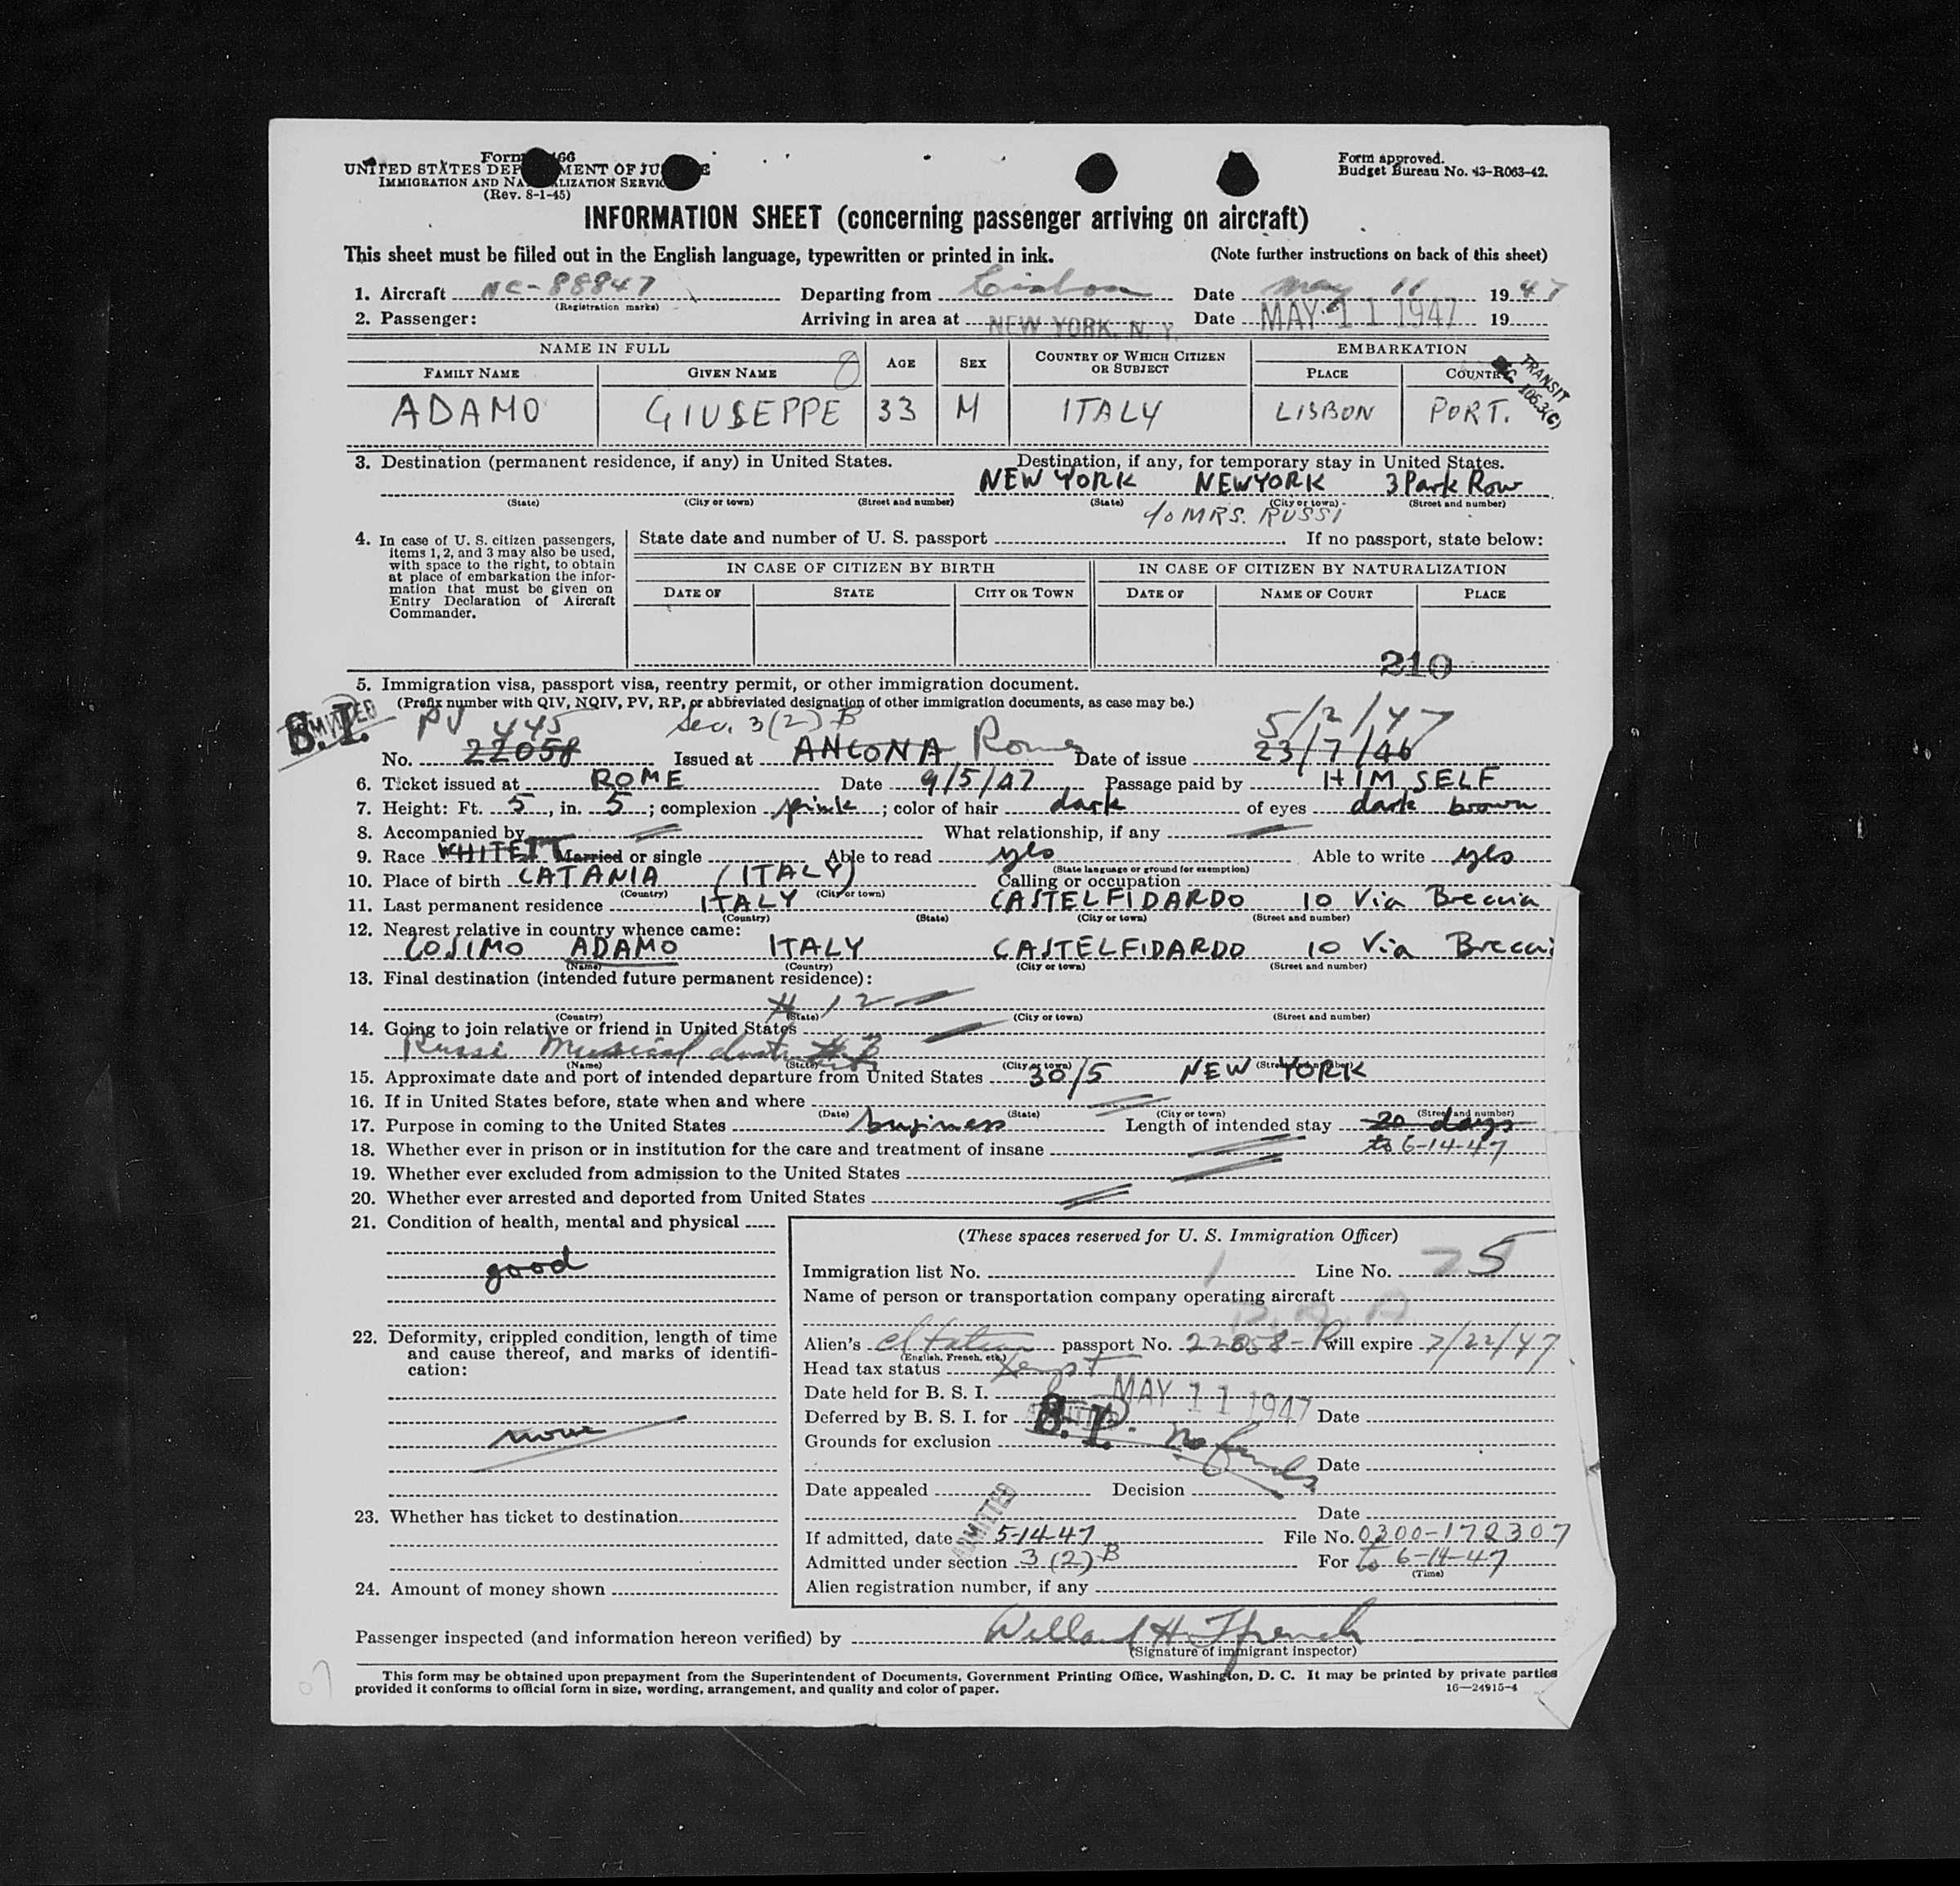 Form 66
UNITED STATES DEP MENT OF JU E
IMMIGRATION AND NA LIZATION SERVIC
(Rev. 8-1-45)
Form approved.
Budget Bureau No. 43-R063-42.
INFORMATION SHEET (concerning passenger arriving on aircraft)
This sheet must be filled out in the English language, typewritten or printed in ink. (Note further instructions on back of this sheet)
1. Aircraft NC-88847 Departing from Lisbon Date May 11 1947
(Registration marks)
2. Passenger: Arriving in area at NEW YORK, N. Y. Date MAY 11 1947 19
NAME IN FULL AGE SEX COUNTRY OF WHICH CITIZEN OR SUBJECT EMBARKATION
FAMILY NAME GIVEN NAME PLACE COUNTRY
TRANSIT
106.3(6)
ADAMO GIUSEPPE 33 M ITALY LISBON PORT.
3. Destination (permanent residence, if any) in United States. Destination, if any, for temporary stay in United States.
NEW YORK NEW YORK 3 Park Row
(State) (City or town) (Street and number) (State) (City or town) (Street and number)
c/o MRS. RUSSI
4. In case of U. S. citizen passengers, items 1, 2, and 3 may also be used, with space to the right, to obtain at place of embarkation the information that must be given on Entry Declaration of Aircraft Commander.
State date and number of U. S. passport If no passport, state below:
IN CASE OF CITIZEN BY BIRTH IN CASE OF CITIZEN BY NATURALIZATION
DATE OF STATE CITY OR TOWN DATE OF NAME OF COURT PLACE
210
5. Immigration visa, passport visa, reentry permit, or other immigration document.
(Prefix number with QIV, NQIV, PV, RP, or abbreviated designation of other immigration documents, as case may be.)
B.I. ADMITTED
PV 445 Sec. 3(2) B 5/2/47
No. 22058 Issued at ANCONA Rome Date of issue 23/7/46
6. Ticket issued at ROME Date 9/5/47 Passage paid by HIMSELF
7. Height: Ft. 5, in. 5; complexion pink; color of hair dark of eyes dark brown
8. Accompanied by What relationship, if any
9. Race WHITE IT Married or single Able to read yes Able to write yes
(State language or ground for exemption)
10. Place of birth CATANIA (ITALY) Calling or occupation
(Country) (City or town)
11. Last permanent residence ITALY CASTELFIDARDO 10 Via Breccia
(Country) (State) (City or town) (Street and number)
12. Nearest relative in country whence came:
COSIMO ADAMO ITALY CASTELFIDARDO 10 Via Brecci
(Name) (Country) (City or town) (Street and number)
13. Final destination (intended future permanent residence):
# 12
(Country) (State) (City or town) (Street and number)
14. Going to join relative or friend in United States
Russi Musical
(Name) (State) (City or town) (Street and number)
15. Approximate date and port of intended departure from United States 30/5 NEW YORK
16. If in United States before, state when and where
(Date) (State) (City or town) (Street and number)
17. Purpose in coming to the United States business Length of intended stay 20 days
to 6-14-47
18. Whether ever in prison or in institution for the care and treatment of insane
19. Whether ever excluded from admission to the United States
20. Whether ever arrested and deported from United States
21. Condition of health, mental and physical
good
22. Deformity, crippled condition, length of time and cause thereof, and marks of identification:
none
23. Whether has ticket to destination
24. Amount of money shown
(These spaces reserved for U. S. Immigration Officer)
Immigration list No. 1 Line No. 5
Name of person or transportation company operating aircraft
P. A. A.
Alien's passport No. 22058-P will expire 7/22/47
(English, French, etc.)
Head tax status Xempt
Date held for B. S. I. MAY 11 1947
Deferred by B. S. I. for B.I. Date
Grounds for exclusion no funds
Date
Date appealed Decision
Date
ADMITTED
If admitted, date 5-14-47 File No. 0300-172307
Admitted under section 3(2) B For to 6-14-47
(Time)
Alien registration number, if any
Passenger inspected (and information hereon verified) by Willard H. Ffrench
(Signature of immigrant inspector)
This form may be obtained upon prepayment from the Superintendent of Documents, Government Printing Office, Washington, D. C. It may be printed by private parties
provided it conforms to official form in size, wording, arrangement, and quality and color of paper. 16—24915-4